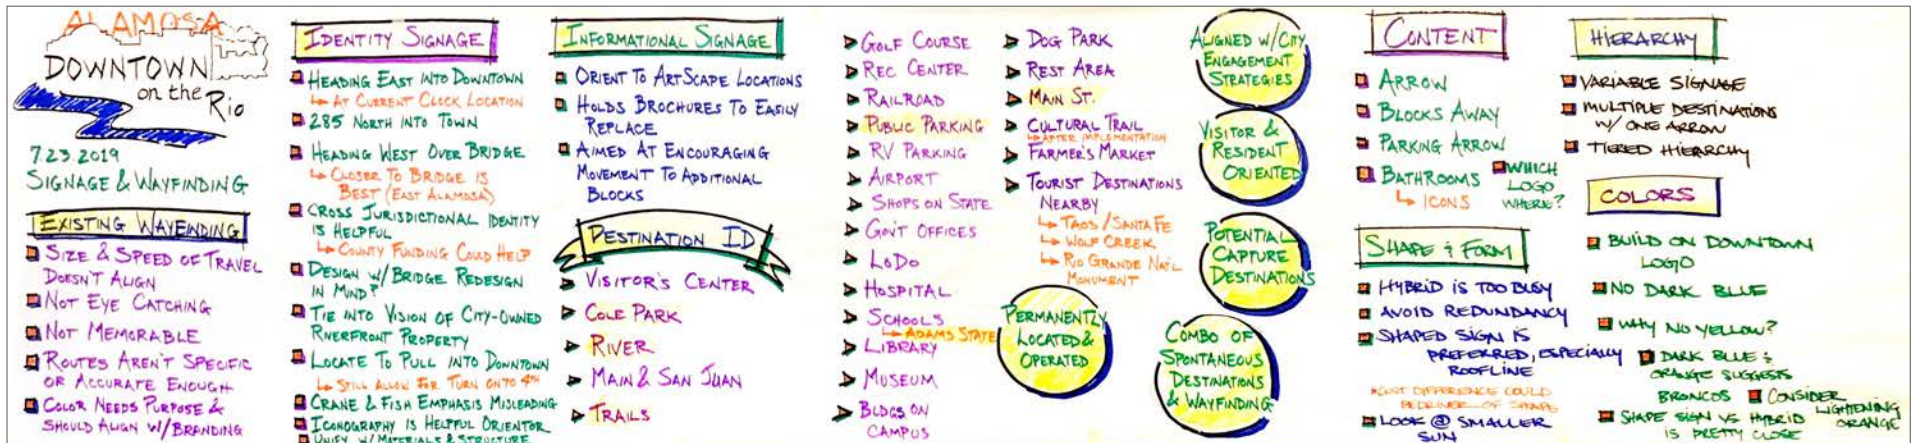 ALAMOSA
DOWNTOWN
on the
Rio
7.23.2019
SIGNAGE & WAYFINDING
EXISTING WAYFINDING
SIZE & SPEED OF TRAVEL
DOESN'T ALIGN
NOT EYE CATCHING
NOT MEMORABLE
ROUTES AREN'T SPECIFIC
OR ACCURATE ENOUGH
COLOR NEEDS PURPOSE &
SHOULD ALIGN W/BRANDING
IDENTITY SIGNAGE
HEADING EAST INTO DOWNTOWN
AT CURRENT CLOCK LOCATION
285 NORTH INTO TOWN
HEADING WEST OVER BRIDGE
CLOSER TO BRIDGE IS
BEST (EAST ALAMOSA)
CROSS JURISDICTIONAL IDENTITY
IS HELPFUL
COUNTY FUNDING COULD HELP
DESIGN W/BRIDGE REDESIGN
IN MIND?
TIE INTO VISION OF CITY-OWNED
RIVERFRONT PROPERTY
LOCATE TO PULL INTO DOWNTOWN
STILL ALLOW FOR TURN ONTO 4TH
CRANE & FISH EMPHASIS MISLEADING
ICONOGRAPHY IS HELPFUL ORIENTOR
UNIFY W/MATERIALS & STRUCTURE
INFORMATIONAL SIGNAGE
ORIENT TO ARTSCAPE LOCATIONS
HOLDS BROCHURES TO EASILY
REPLACE
AIMED AT ENCOURAGING
MOVEMENT TO ADDITIONAL
BLOCKS
DESTINATION ID
VISITOR'S CENTER
COLE PARK
RIVER
MAIN & SAN JUAN
TRAILS
GOLF COURSE
REC CENTER
RAILROAD
PUBLIC PARKING
RV PARKING
AIRPORT
SHOPS ON STATE
GOV'T OFFICES
LODO
HOSPITAL
SCHOOLS
ADAMS STATE
LIBRARY
MUSEUM
BLDGS ON
CAMPUS
DOG PARK
REST AREA
MAIN ST.
CULTURAL TRAIL
AFTER IMPLEMENTATION
FARMER'S MARKET
TOURIST DESTINATIONS
NEARBY
TAOS/SANTA FE
WOLF CREEK
RIO GRANDE NAT'L
MONUMENT
PERMANENTLY
LOCATED &
OPERATED
ALIGNED W/CITY
ENGAGEMENT
STRATEGIES
VISITOR &
RESIDENT
ORIENTED
POTENTIAL
CAPTURE
DESTINATIONS
COMBO OF
SPONTANEOUS
DESTINATIONS
& WAYFINDING
CONTENT
ARROW
BLOCKS AWAY
PARKING ARROW
BATHROOMS
ICONS
WHICH
LOGO
WHERE?
SHAPE & FORM
HYBRID IS TOO BUSY
AVOID REDUNDANCY
SHAPED SIGN IS
PREFERRED, ESPECIALLY
ROOFLINE
COST DIFFERENCE COULD
BE DRIVER OF SHAPE
LOOK @ SMALLER
SUN
HIERARCHY
VARIABLE SIGNAGE
MULTIPLE DESTINATIONS
W/ ONE ARROW
TIERED HIERARCHY
COLORS
BUILD ON DOWNTOWN
LOGO
NO DARK BLUE
WHY NO YELLOW?
DARK BLUE &
ORANGE SUGGESTS
BRONCOS
CONSIDER
LIGHTENING
ORANGE
SHAPE SIGN VS HYBRID
IS PRETTY CLOSE